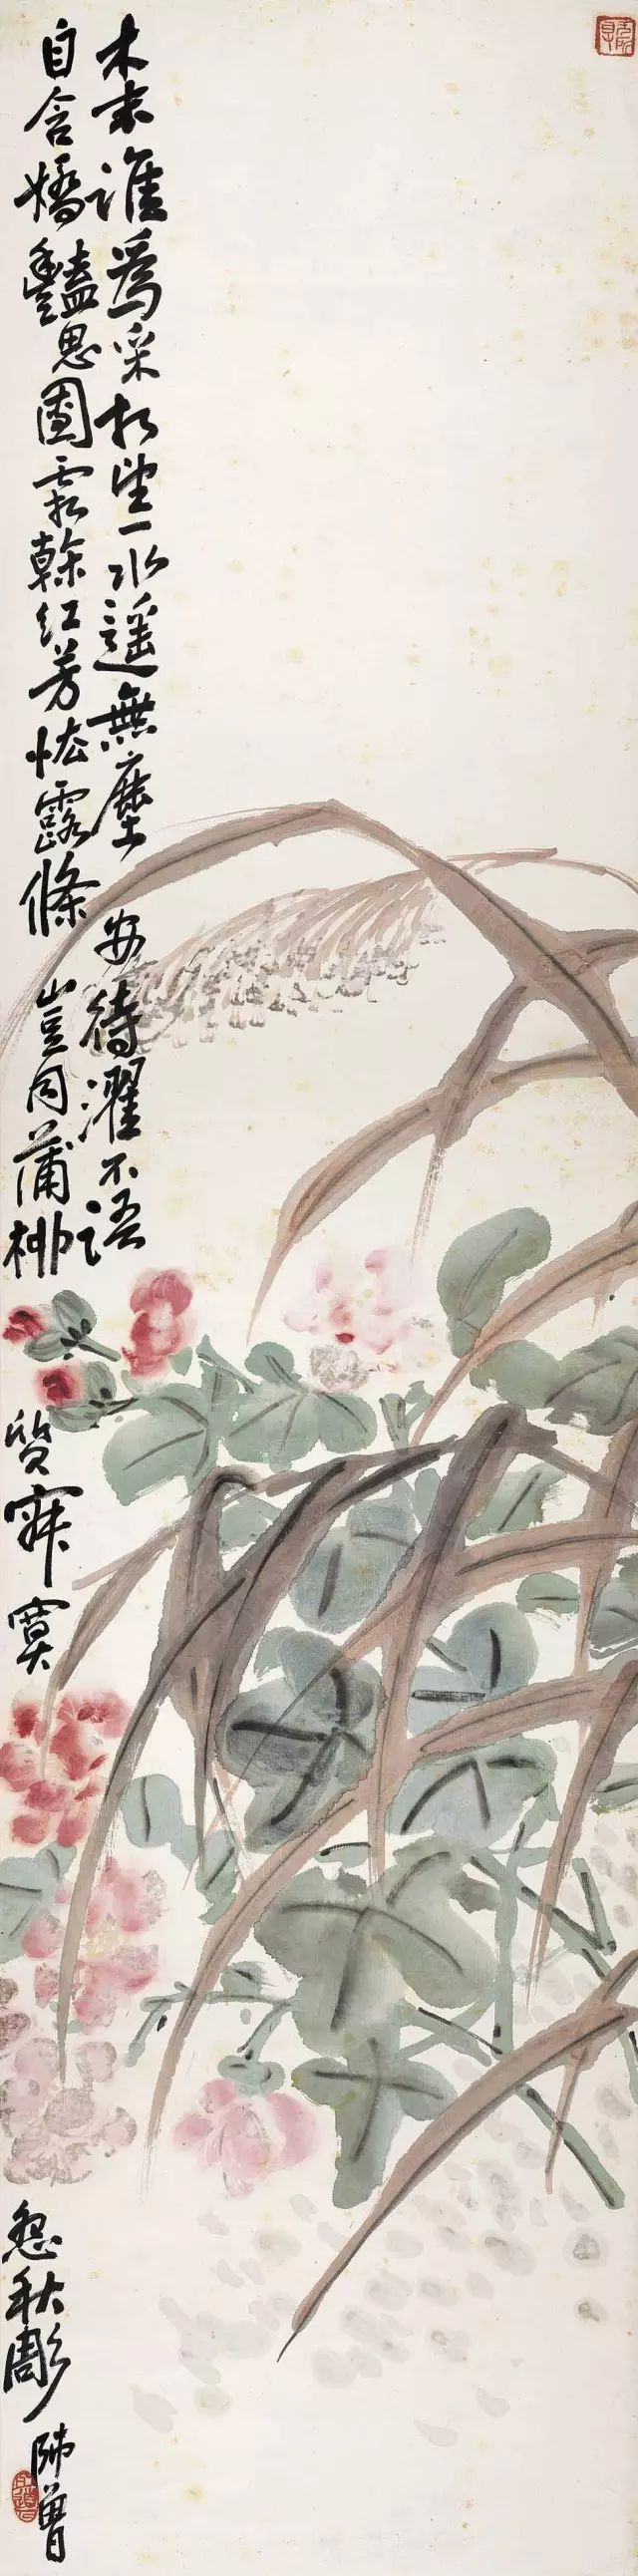 木末誰為采相望一水遥無塵安待濯不語
自含嬌豔思固霜榦紅芳怯露條豈同蒲柳質寂寞怨秋彫
師曾